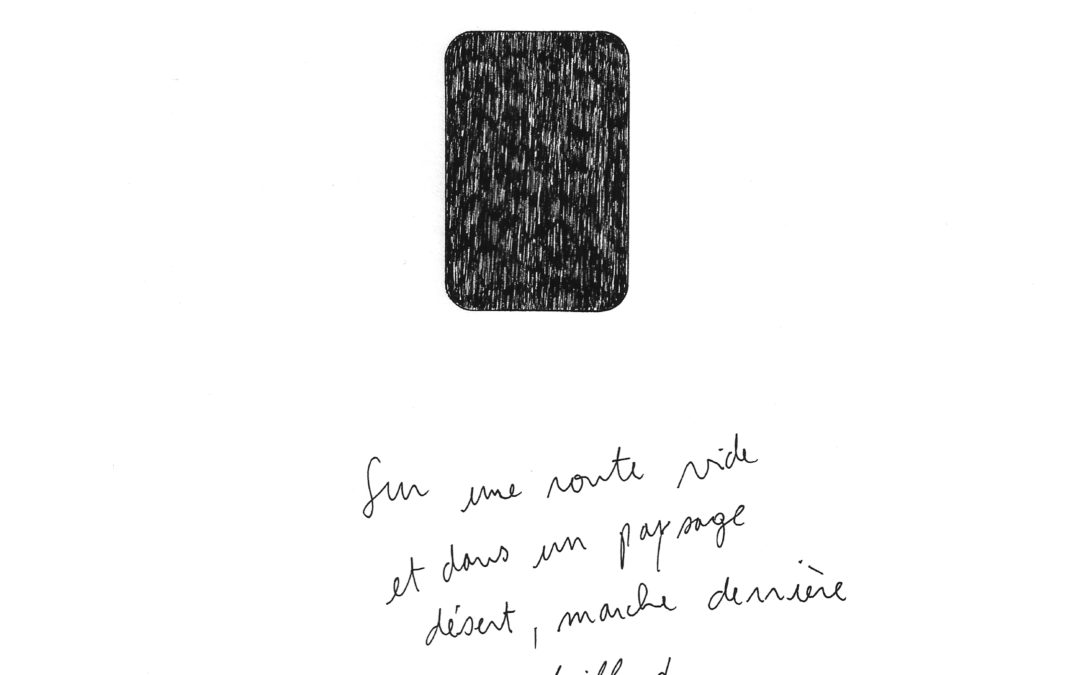 Sur une route vide
et dans un paysage
désert, marche derrière